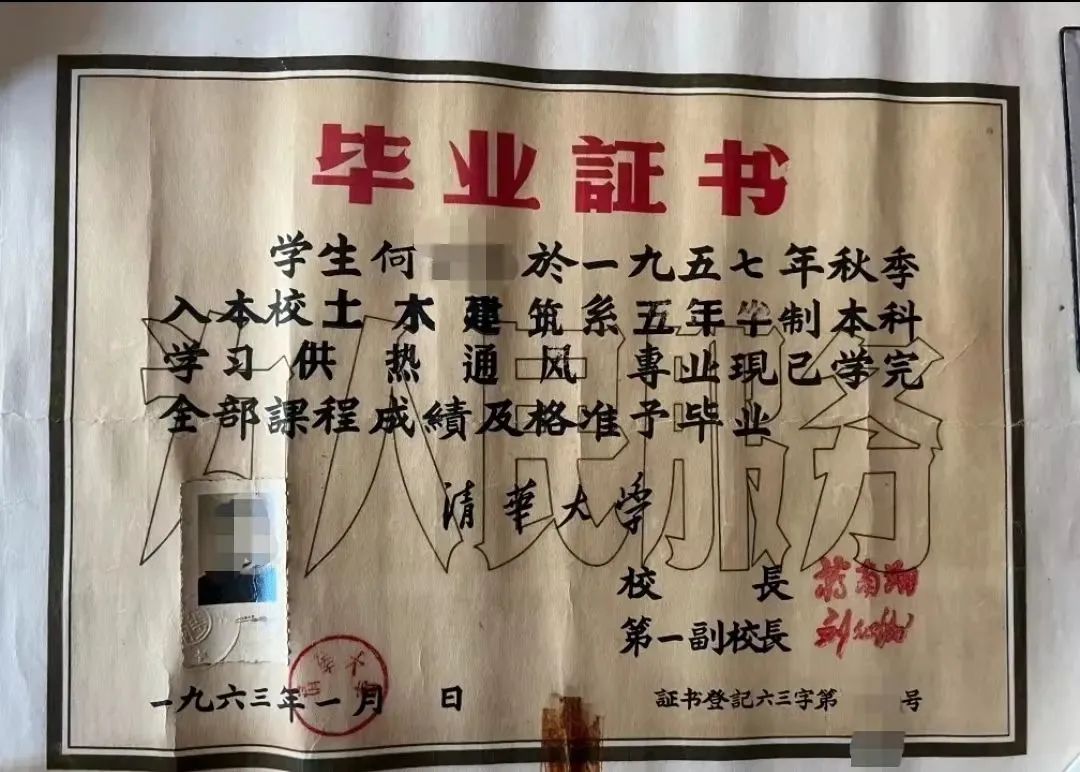 毕业証书
学生何 於一九五七年秋季
入本校土木建筑系五年半制本科
学习供热通风專业現已学完
全部課程成績及格准予毕业
为人民服务
清華大学
校長 蔣南翔
第一副校長 刘仙洲
一九六三年一月 日
証书登記六三字第 号